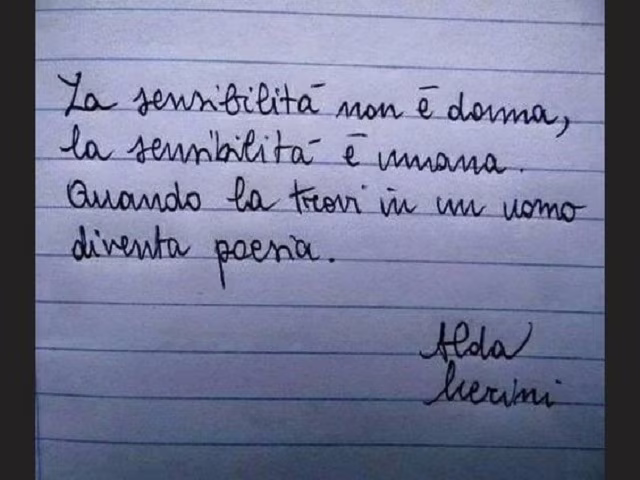 La sensibilità non è donna,
la sensibilità è umana.
Quando la trovi in un uomo
diventa poesia.
Alda
Merini